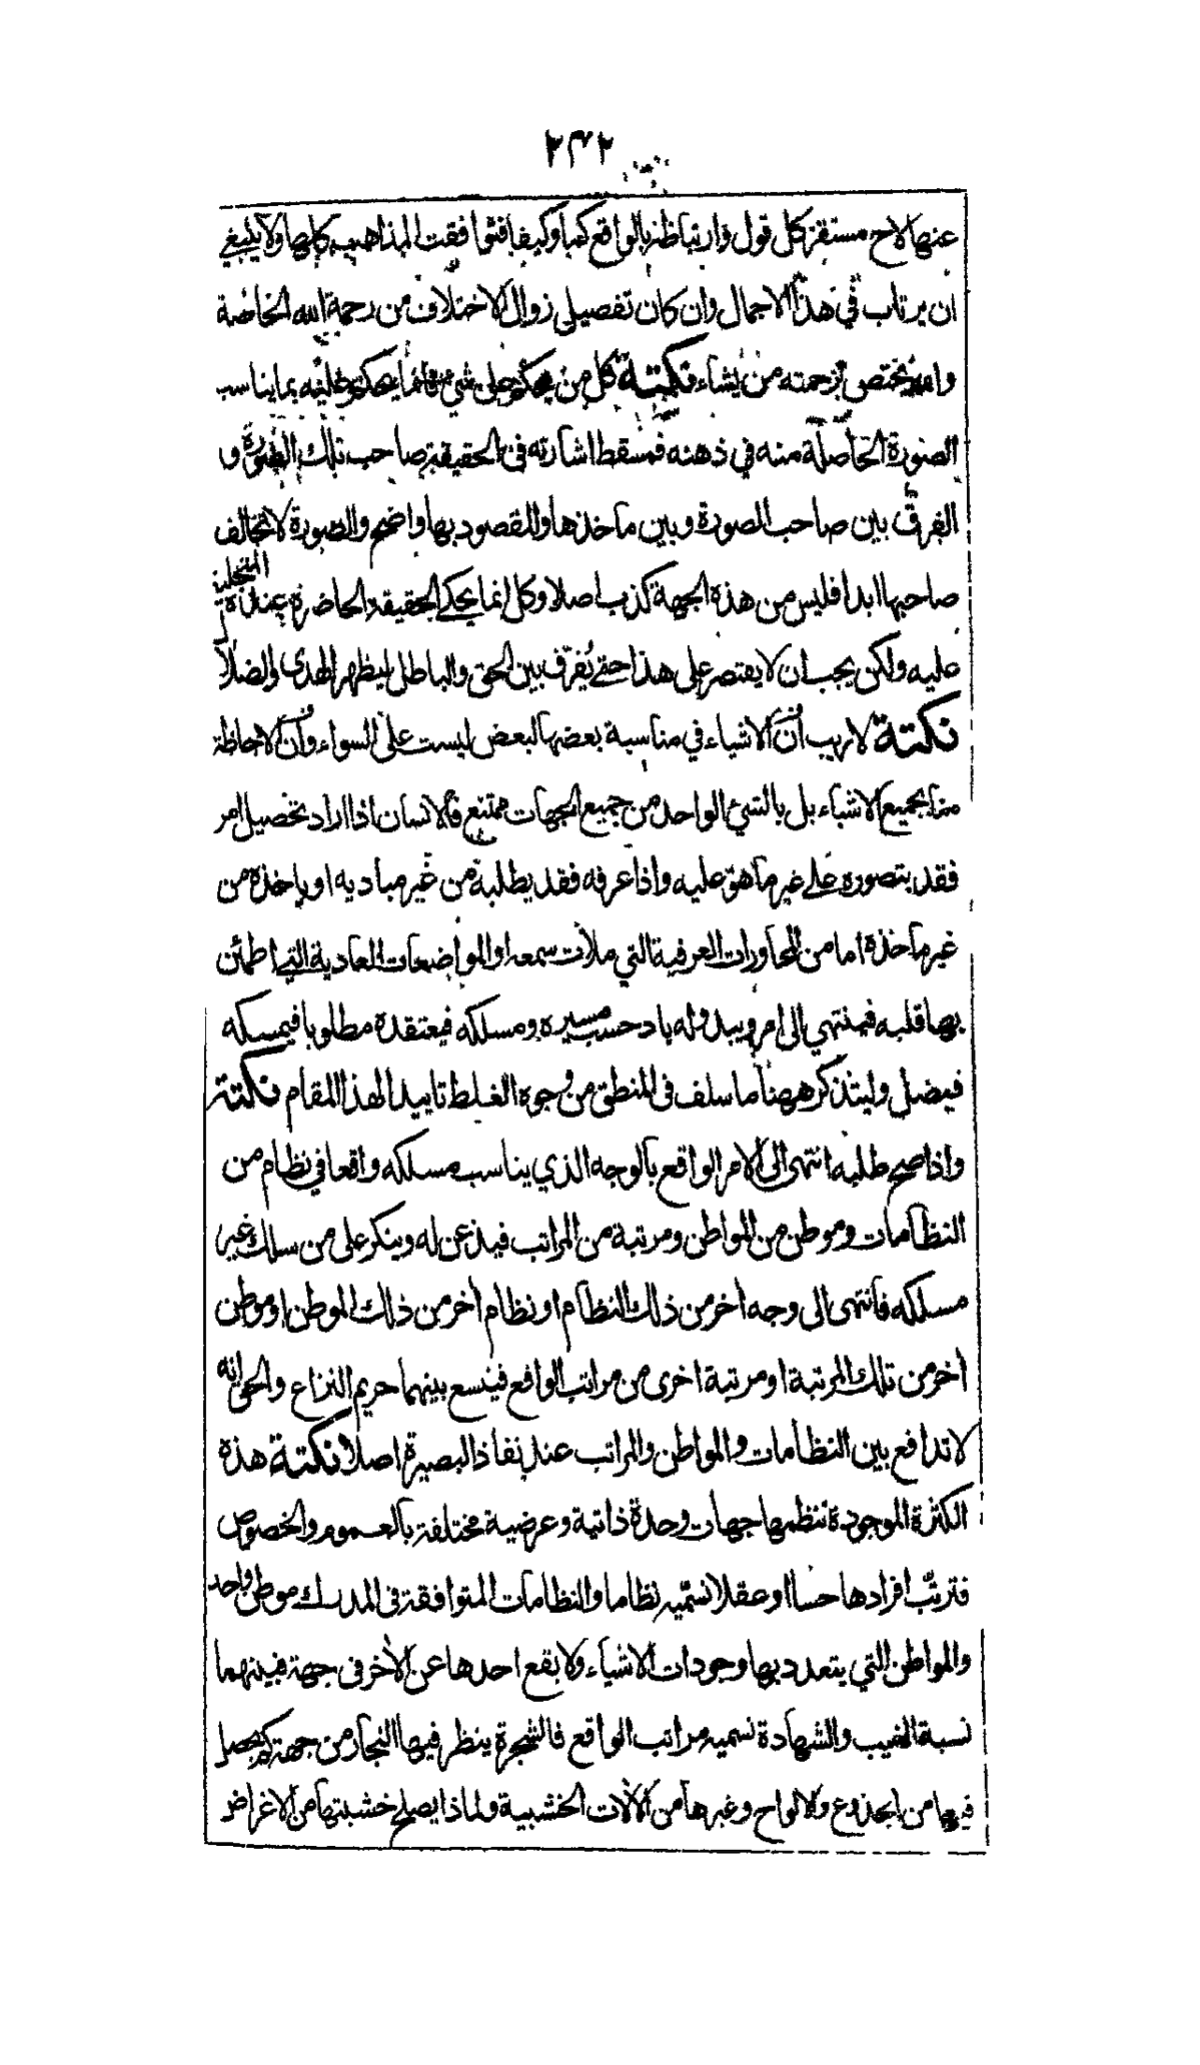 ٢٤٢
عنها لاح مستقر كل قول وارتباطه بالواقع كما وكيفا فتوافقت المذاهب كلها ولا ينبغي
ان يرتاب في هذا الاجمال وان كان تفصيلي زوال الاختلاف من رحمة الله الخاصة
والله يختص برحمته من يشاء نكتة كل من يحكم على شيء فانما يحكم عليه بما يناسب
الصورة الحاصلة منه في ذهنه فمسقط اشارته في الحقيقة صاحب تلك الصورة و
الفرق بين صاحب الصورة وبين ماخذها والمقصود بها واضح والصورة لا تخالف
صاحبها ابدا فليس من هذه الجهة كذب اصلا وكل انما يحكي الحقيقة الحاضرة عنده المتجلية
عليه ولكن يجب ان لا يقتصر على هذا حتى يُفرّق بين الحق والباطل ليظهر الهدى والضلال
نكتة لا ريب أن الاشياء في مناسبة بعضها لبعض ليست على السواء وأن الاحاطة
منا بجميع الاشياء بل بالشيء الواحد من جميع الجهات ممتنع فالانسان اذا اراد تحصيل امر
فقد يتصوره على غير ما هو عليه واذا عرفه فقد يطلبه من غير مباديه او ياخذه من
غير ماخذه اما من المحاورات العرفية التي ملأت سمعه او المواضعات العادية التي اطمئن
بها قلبه فينتهي الى امر ويبدو له باد حسب مسيره ومسلكه فيعتقده مطلوبا فيمسكه
فيضل وليتذكر ههنا ما سلف في المنطق من وجوه الغلط تاييدا لهذا المقام نكتة
واذا صح طلبه انتهى الى الامر الواقع بالوجه الذي يناسب مسلكه واقعا في نظام من
النظامات وموطن من المواطن ومرتبة من المراتب فيذعن له وينكر على من سلك غير
مسلكه فانتهى الى وجه اخر من ذلك النظام او نظام أخر من ذلك الموطن او موطن
أخر من تلك المرتبة او مرتبة اخرى من مراتب الواقع فيتسع بينهما حريم النزاع والحق انه
لا تدافع بين النظامات والمواطن والمراتب عند نفاذ البصيرة اصلا نكتة هذه
الكثرة الموجودة تنظمها جهات وحدة ذاتية وعرضية مختلفة بالعموم والخصوص
فترتّب افرادها حسا او عقلا نسمّيه نظاما والنظامات المتوافقة في المدرك موطن واحد
والمواطن التي يتعدد بها وجودات الاشياء ولا يقع احدها عن الأخر في جهة فبينهما
نسبة الغيب والشهادة نسميه مراتب الواقع فالشجرة ينظر فيها النجار من جهة كم يحصل
فيها من الجذوع والالواح وغيرها من الألات الخشبية ولماذا يصلح خشبتها من الاغراض